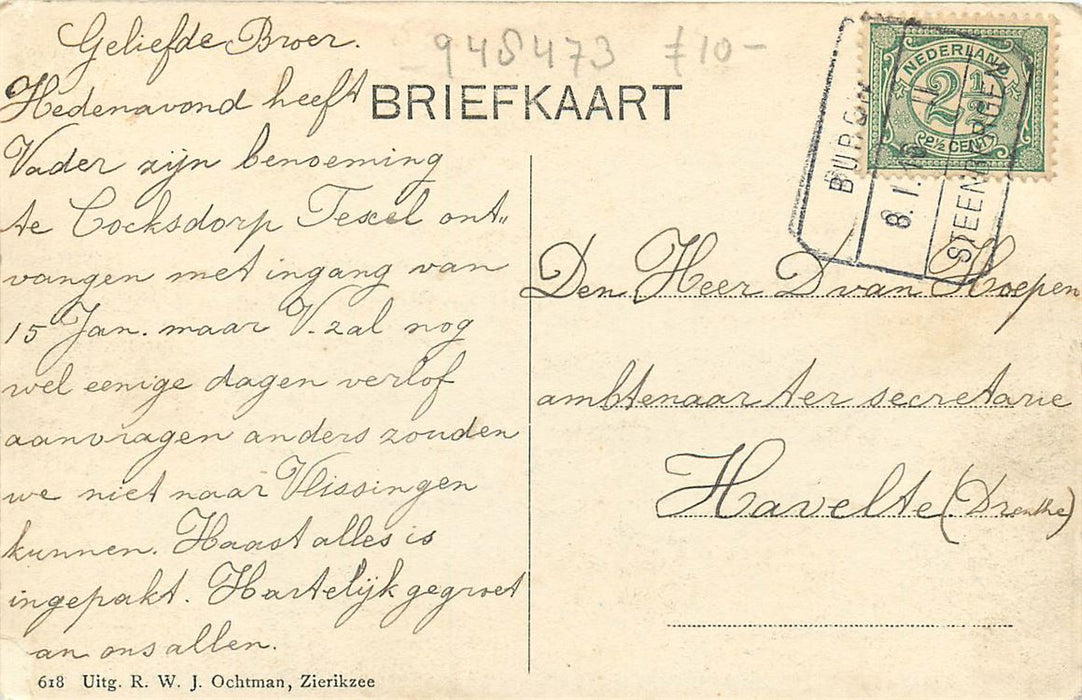 Geliefde Broer.
Hedenavond heeft
Vader zijn benoeming
te Cocksdorp Texel ont„
vangen met ingang van
15 Jan. maar V. zal nog
wel eenige dagen verlof
aanvragen anders zouden
we niet naar Vlissingen
kunnen. Haast alles is
ingepakt. Hartelijk gegroet
an ons allen.
618 Uitg. R. W. J. Ochtman, Zierikzee
948473 £10-
BRIEFKAART
NEDERLAND
2½
2½ CENT
8.1.
Den Heer D van Hoepen
ambtenaar ter secretarie
Havelte (Drenthe)